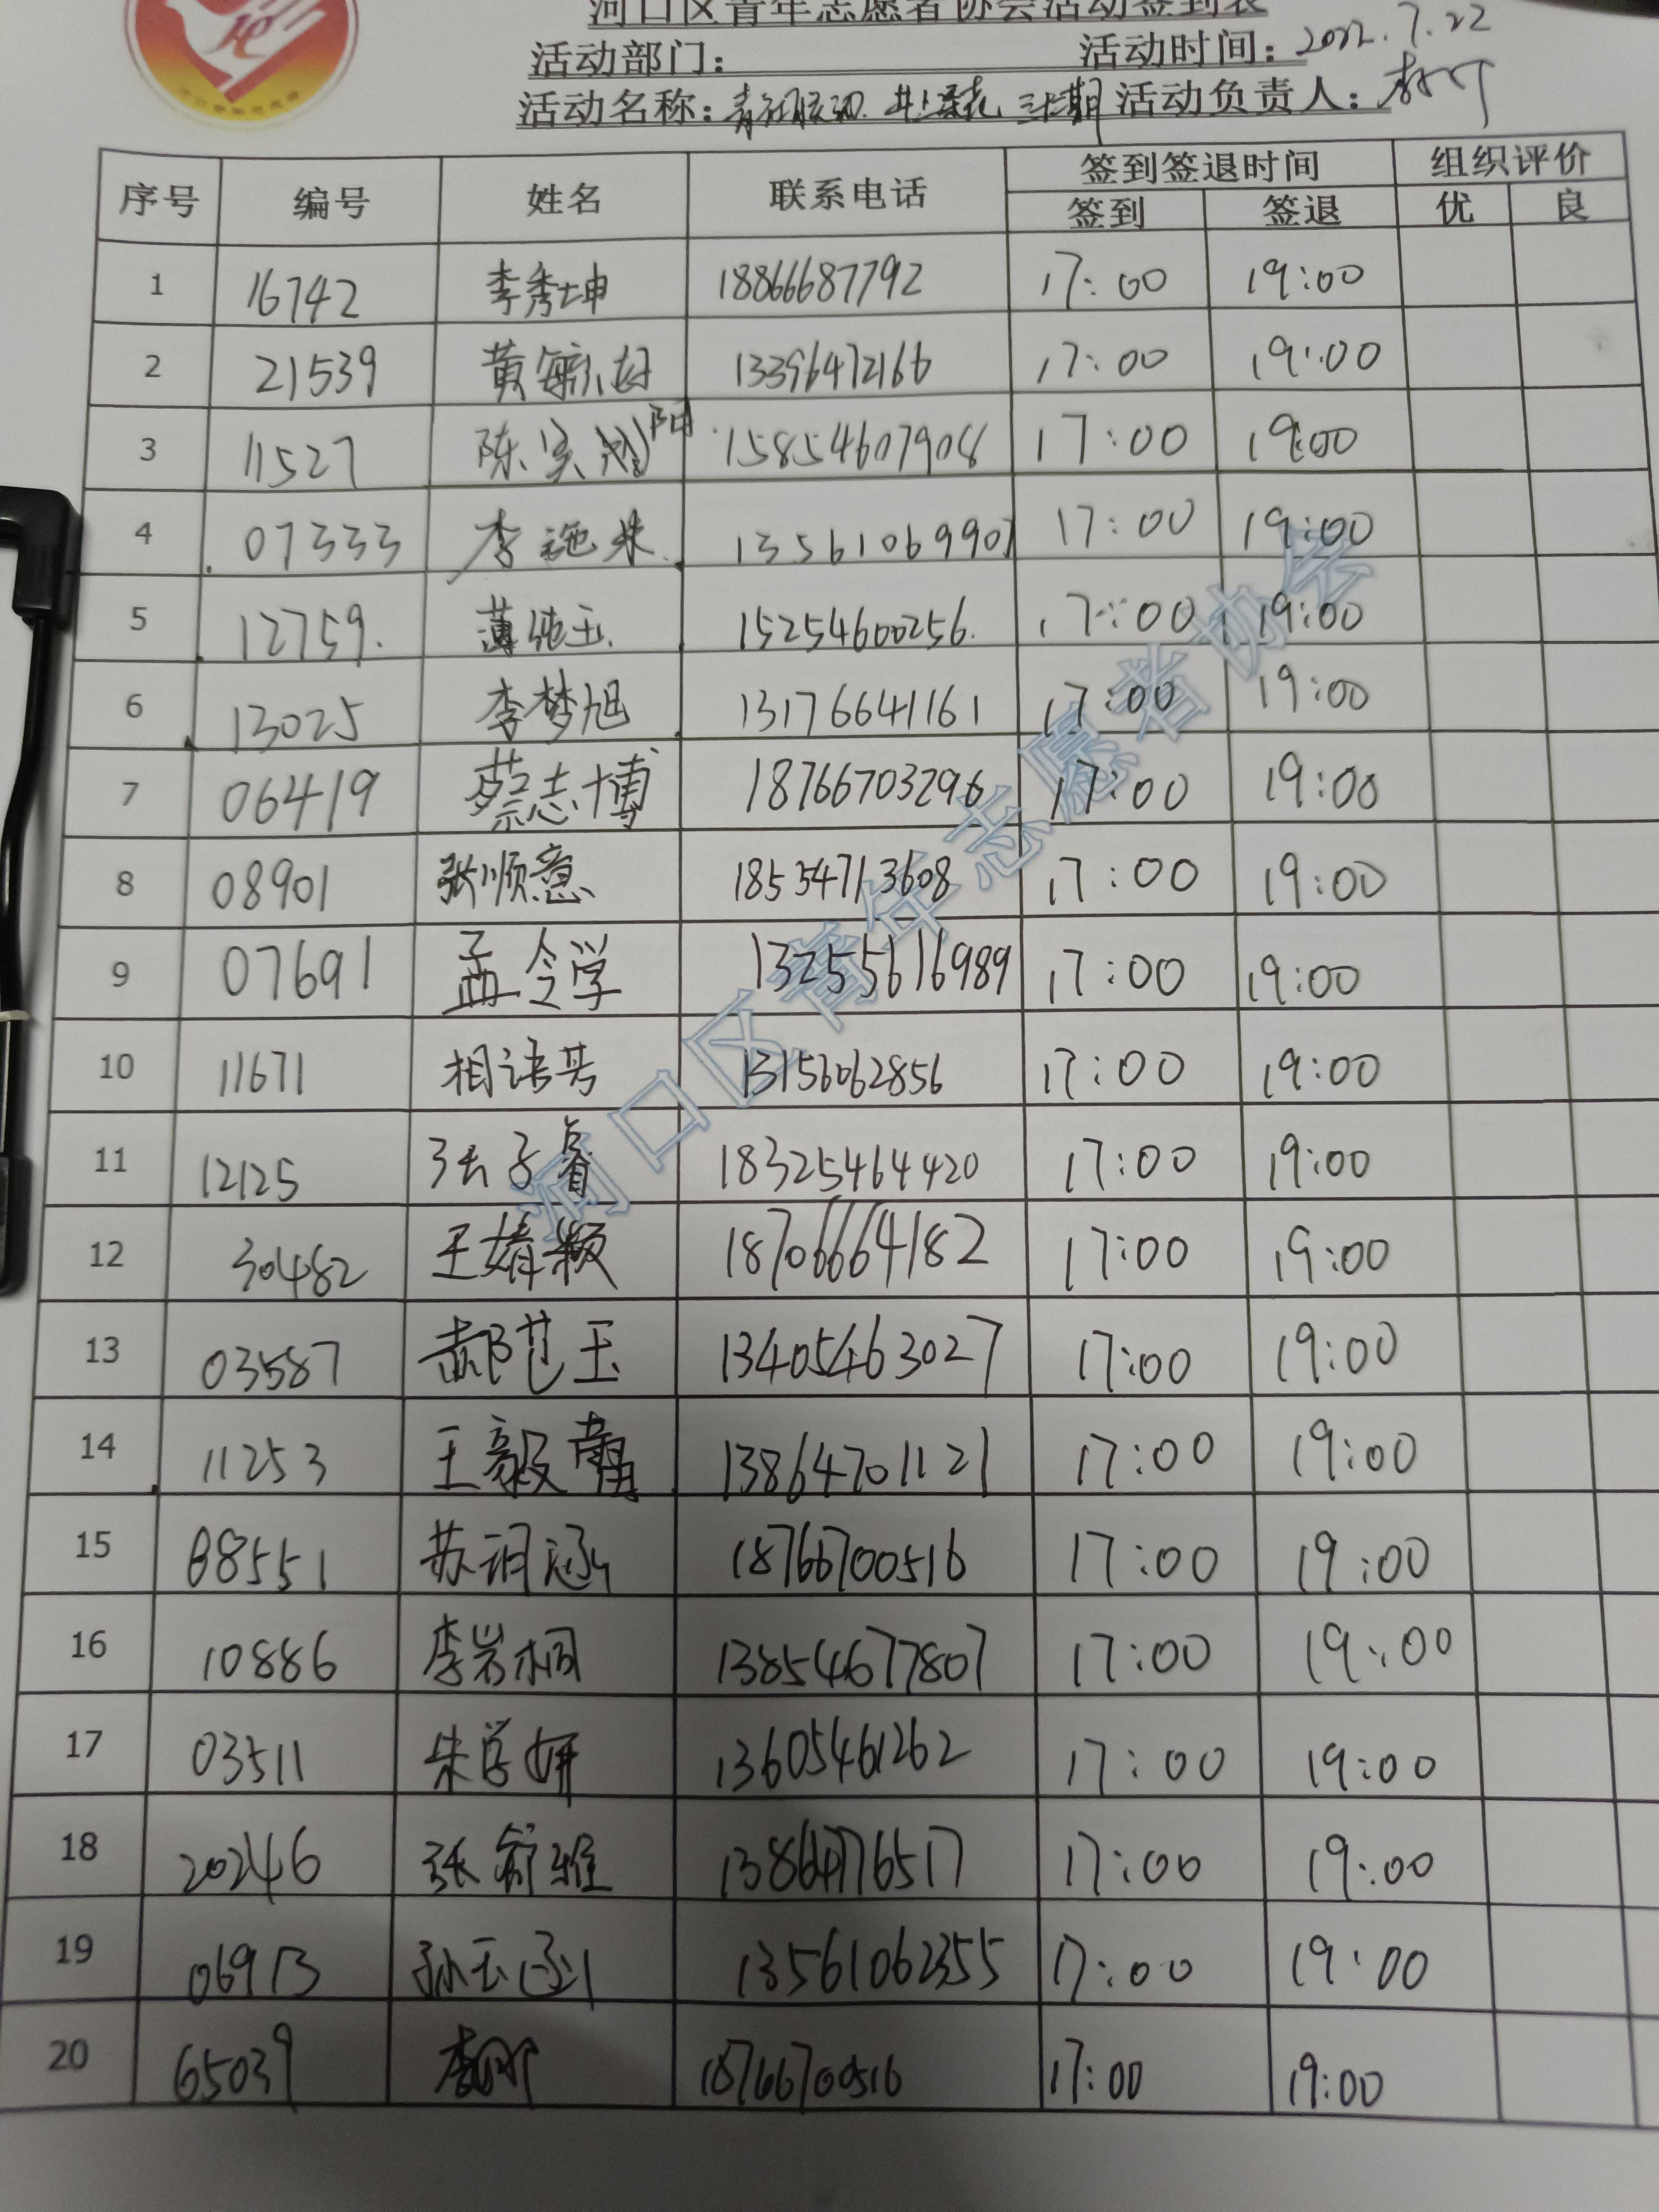 河口区青年志愿者协会活动签到表
活动部门: 活动时间: 2022.7.22
活动名称: 三十期 活动负责人:
序号 编号 姓名 联系电话 签到签退时间 组织评价
签到 签退 优 良
1 16742 李秀坤 18866687792 17:00 19:00
2 21539 黄毓 13396472166 17:00 19:00
3 11527 陈 阳 15854607908 17:00 19:00
4 07333 李 13561069907 17:00 19:00
5 12759. 薄纯玉. 15254600256. 17:00 19:00
6 13025 李梦旭 13176641161 17:00 19:00
7 06419 蔡志博 18766703296 17:00 19:00
8 08901 张顺意 18554713608 17:00 19:00
9 07691 孟令学 13255616989 17:00 19:00
10 11671 相语 13156062856 17:00 19:00
11 12125 张子睿 18325464420 17:00 19:00
12 30482 王婧颖 18706664182 17:00 19:00
13 03587 郝范玉 13405463027 17:00 19:00
14 11253 王毅 13864701121 17:00 19:00
15 08551 苏词涵 18766700516 17:00 19:00
16 10886 李岩桐 13854677807 17:00 19:00
17 03511 朱学妍 13605461262 17:00 19:00
18 20246 张 雅 13864776517 17:00 19:00
19 06913 孙玉涵 13561062355 17:00 19:00
20 65039 李 18766700516 17:00 19:00
河口区青年志愿者协会